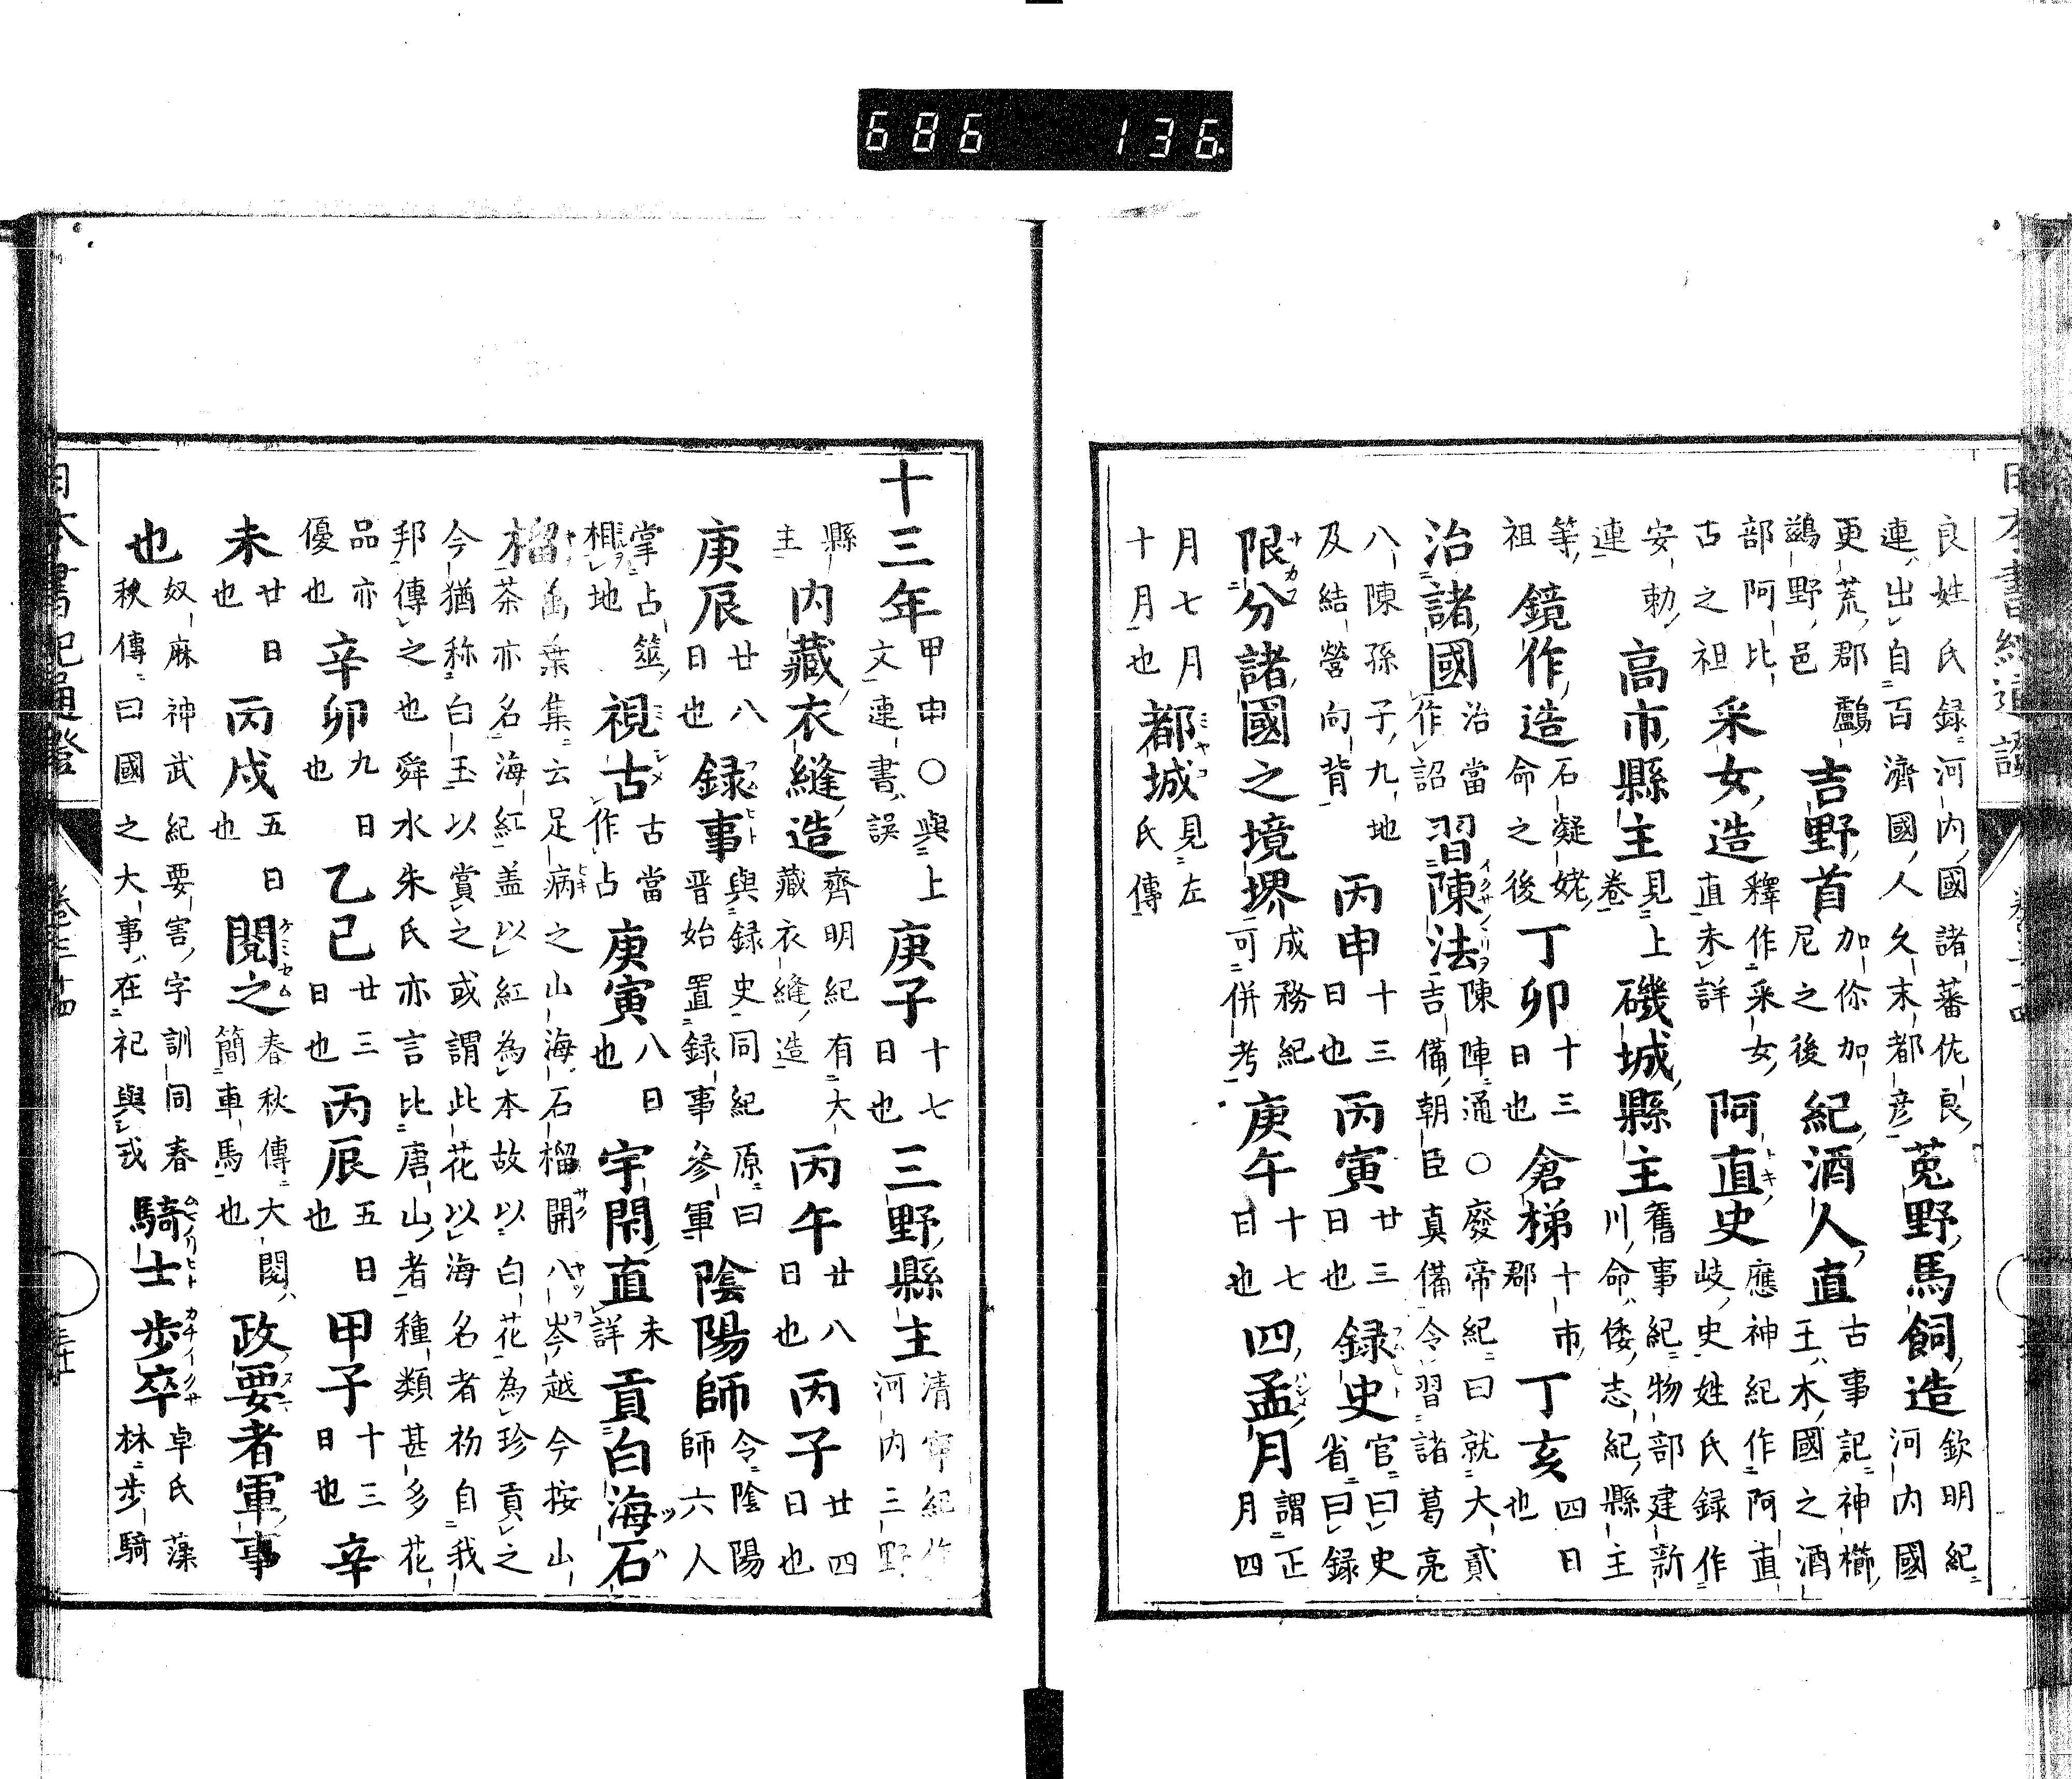 良姓氏録河内國諸蕃佐良
連出自百濟國人久末都彦
菟野馬飼造
欽明紀
河内國
更荒郡鸕
鷀野邑
吉野首
加你加
尼之後
紀酒人直
古事記神櫛
王木國之酒
部阿比
古之祖
釆女造
釋作釆女
直未詳
阿直史
應神紀作阿直
岐史姓氏録作
安勅
連
高市縣主
見上
卷
磯城縣主
舊事紀物部建新
川命倭志紀縣主
等
祖
鏡作造
石凝姥
命之後
丁卯
十三
日也
倉梯
十市
郡
丁亥
四日
也
治諸國
治當
作詔
習陳法
陳陣通○廢帝紀曰就大貳
吉備朝臣真備令習諸葛亮
八陳孫子九地
及結營向背
丙申
十三
日也
丙寅
廿三
日也
録史
官曰史
省曰録
限分諸國之境堺
成務紀
可併考
庚午
十七
日也
四孟月
謂正
月四
月七月
十月也
都城
見左
氏傳
十三年
甲申○與上
文連書誤
庚子
十七
日也
三野縣主
清寧紀作
河内三野
縣
主
内藏衣縫造
齊明紀有大
藏衣縫造
丙午
廿八
日也
丙子
廿四
日也
庚辰
廿八
日也
録事
與録史同紀原曰
晋始置録事參軍
陰陽師
令陰陽
師六人
掌占筮
相地
視古
古當
作占
庚寅
八日
也
宇閇直
未
詳
貢白海石
榴
萬葉集云足病之山海石榴開八岑越今按山
茶亦名海紅盖以紅為本故以白花為珍貢之
今猶称白玉以賞之或謂此花以海名者初自我
邦傳之也舜水朱氏亦言比唐山者種類甚多花
品亦
優也
辛卯
九日
也
乙巳
廿三
日也
丙辰
五日
也
甲子
十三
日也
辛
未
廿日
也
丙戌
五日
也
閲之
春秋傳大閲
簡車馬也
政要者軍事
也
奴麻神武紀要害字訓同春
秋傳曰國之大事在祀與戎
騎士
歩卒
卓氏藻
林歩騎
日本書紀通證
686 136